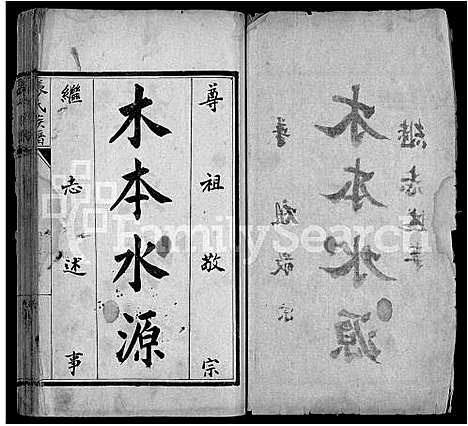 尊祖敬宗
木本水源
繼志述事
氏族譜
FamilySearch